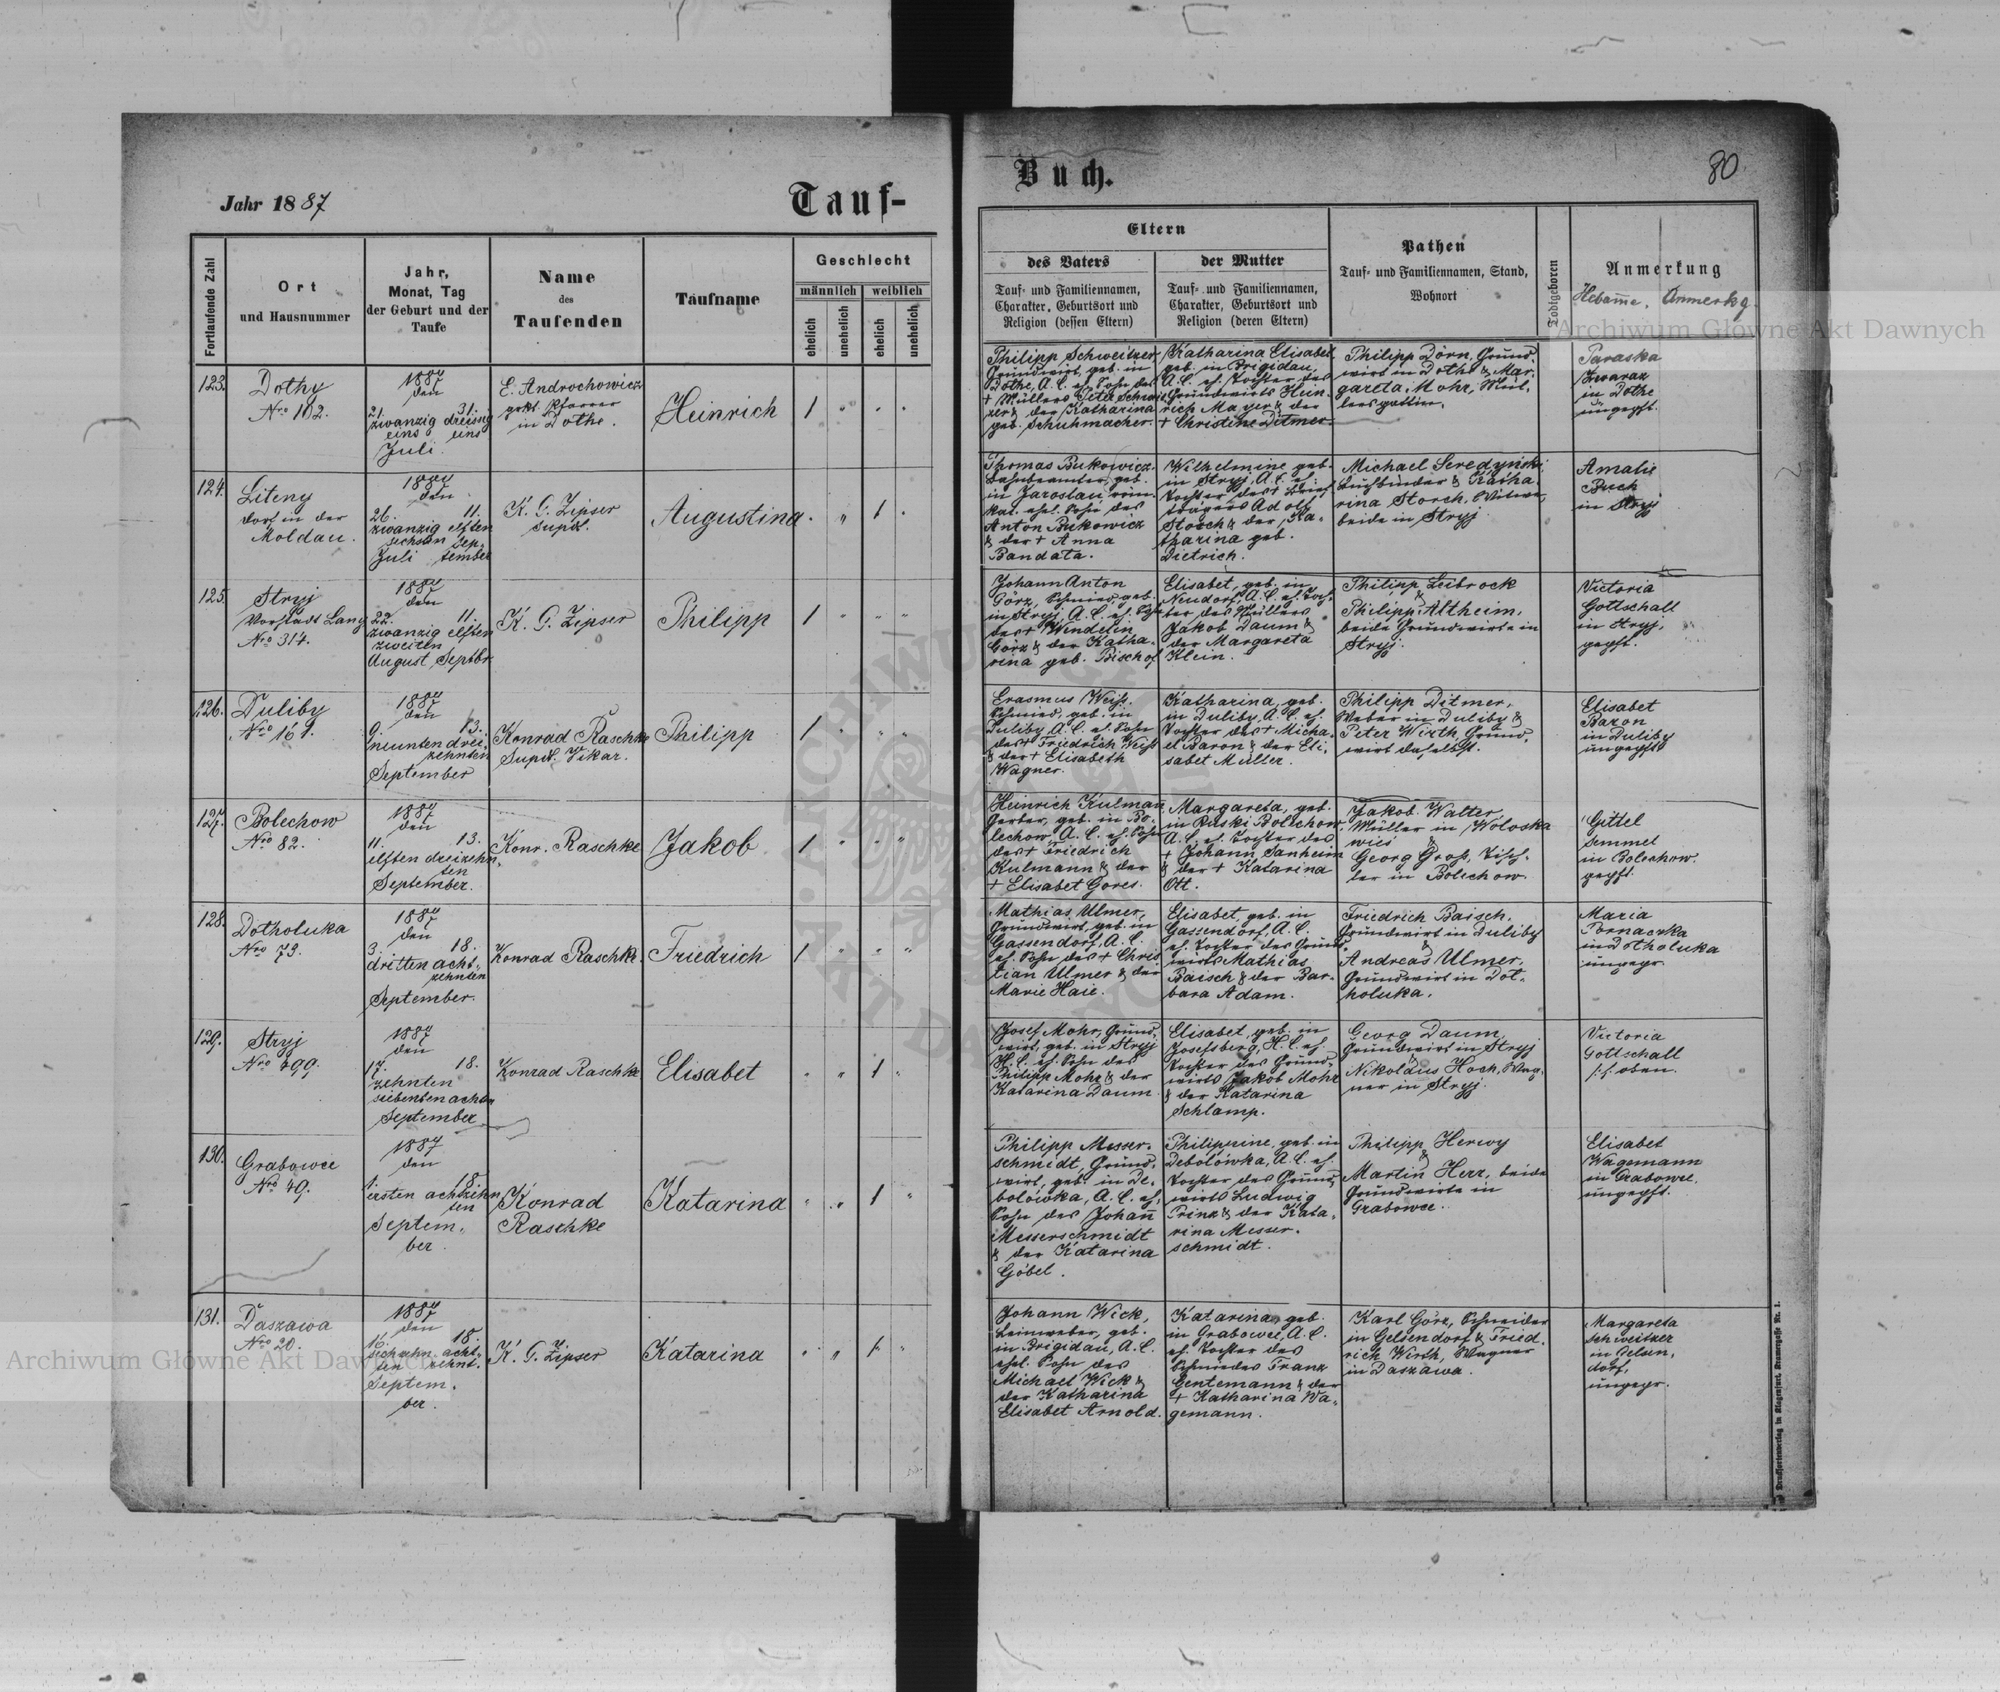 Jahr 1887
Tauf-
Buch.
80
Fortlaufende Zahl
Ort
und Hausnummer
Jahr,
Monat, Tag
der Geburt und der
Taufe
Name
des
Taufenden
Taufname
Geschlecht
männlich
weiblich
ehelich
unehelich
ehelich
unehelich
Eltern
des Vaters
Tauf- und Familiennamen,
Charakter, Geburtsort und
Religion (dessen Eltern)
der Mutter
Tauf- und Familiennamen,
Charakter, Geburtsort und
Religion (deren Eltern)
Pathen
Tauf- und Familiennamen, Stand,
Wohnort
Todtgeboren
Anmerkung
Hebam̅e. Anmerkg.
123.
Dothy
Nro 102.
1887
den
21. 31.
zwanzig dreissig
eins uns
Juli.
E. Androchowicz
Pfarrer
in Dothe.
Heinrich
1
Philipp Schweitzer
Grundwirt, geb. in
Dothe, A. C. eh. Sohn des
+ Müllers Peter Schweit-
zer & der Katharina
geb. Schuhmacher.
Katharina Elisabet
geb. in Brigidau,
A. C. eh. Tochter des
Grundwirts Hein-
rich Mayer & der
+ Christine Ditmer.
Philipp Dörn, Grund-
wirt in Dothe & Mar-
gareta Mohr, Mül-
lersgattin.
Paraska
in Dothe
ungepft.
124.
Liteny
dorf in der
Moldau.
1887
den
26. 11.
zwanzig elften
sechsten Sep-
Juli tember
K. G. Zipser
supdt.
Augustina
1
Thomas Bukowicz
Bahnbeamter, geb.
in Jaroslau, röm.
kat. ehel. Sohn des
Anton Bukowicz
& der + Anna
Bandata.
Wilhelmine geb.
in Stryj, A. C. eh.
Tochter des + Brief-
trägers Adolf
Storch & der Ka-
tharina geb.
Dietrich.
Michael Seredyński
Buchbinder & Katha-
rina Storch, Witwe,
beide in Stryj
Amalie
Buch
in Stryj
125.
Stryj
Vorstadt Lany
Nro 314.
1887
den
22. 11.
zwanzig elften
zweiten
August Septbr.
K. G. Zipser
Philipp
1
Johann Anton
Görz, Schmied, geb.
in Stryj, A. C. eh. Sohn
des + Wendelin
Görz & der Katha-
rina geb. Bischof
Elisabet, geb. in
Neudorf, A. C. eh. Toch-
ter des Müllers
Jakob Daum &
der Margareta
Klein.
Philipp Leibrock
&
Philipp Altheim,
beide Grundwirte in
Stryj.
Victoria
Gottschall
in Stryj,
gepft.
126.
Duliby
Nro 161.
1887
den
9. 13.
neunten drei-
zehnten
September
Konrad Raschke
Supdt. Vikar.
Philipp
1
Erasmus Weiß.
Schmied, geb. in
Duliby A. C. eh. Sohn
des + Friedrich Weiß
& der + Elisabeth
Wagner.
Katharina, geb.
in Duliby, A. C. eh.
Tochter des + Micha-
el Baron & der Eli-
sabet Müller.
Philipp Ditmer,
Weber in Duliby &
Peter Wirth, Grund-
wirt daselbst.
Elisabet
Baron
in Duliby
ungepft
127.
Bolechow
Nro 82.
1887
den
11. 13.
elften dreizehn-
ten
September.
Konr. Raschke
Jakob
1
Heinrich Kulman
Gerber, geb. in Bo-
lechow, A. C. eh. Sohn
des + Friedrich
Kulmann & der
+ Elisabet Gores.
Margareta, geb.
in Ruski Bolechow,
A. C. eh. Tochter des
+ Johann Sanheim
& der + Katarina
Ott.
Jakob Walter
Müller in Woloska
wies &
Georg Groß, Tisch-
ler in Bolechow.
Gittel
Semmel
in Bolechow.
gepft.
128.
Dotholuka
Nro 73.
1887
den
3. 18.
dritten acht-
zehnten
September.
Konrad Raschke
Friedrich
1
Mathias Ulmer,
Grundwirt, geb. in
Gassendorf, A. C.
eh. Sohn des + Chris
tian Ulmer & der
Marie Haie.
Elisabet, geb. in
Gassendorf, A. C.
eh. Tochter des Grund-
wirts Mathias
Baisch & der Bar-
bara Adam.
Friedrich Baisch,
Grundwirt in Duliby
&
Andreas Ulmer,
Grundwirt in Dot-
holuka.
Maria
in Dotholuka
ungepr.
129.
Stryj
Nro 299.
1887
den
17. 18.
zehnten
siebenten achtn
September
Konrad Raschke
Elisabet
1
Josef Mohr, Grund-
wirt, geb. in Stryj
H. C. eh. Sohn des
Philipp Mohr & der
Katarina Daum
Elisabet, geb. in
Josefsberg, H. C. eh.
Tochter des Grund-
wirts Jakob Mohr
& der Katarina
Schlamp.
Georg Daum,
Grundwirt in Stryj
&
Nikolaus Hoch, Wag-
ner in Stryj.
Victoria
Gottschall
s. oben.
130.
Grabowce
Nro 49.
1887
den
1. 18.
ersten achtzehn
ten
Septem-
ber.
Konrad
Raschke
Katarina
1
Philipp Messer-
schmidt, Grund-
wirt, geb. in De-
bolówka, A. C. eh.
Sohn des Johan̅
Messerschmidt
& der Katarina
Göbel.
Philippine, geb. in
Debolówka, A. C. eh.
Tochter des Grund-
wirts Ludwig
Prinz & der Kata-
rina Messer-
schmidt.
Philipp Herwy
&
Martin Herz, beide
Grundwirte in
Grabowce.
Elisabet
Wagemann
in Grabowce.
ungepft.
131.
Daszawa
Nro 20.
1887
den
16. 18.
sechzehn acht-
ten zehnt.
Septem-
ber.
K. G. Zipser
Katarina
1
Johann Wick,
Leinweber, geb.
in Brigidau, A. C.
ehel. Sohn des
Michael Wick &
der Katharina
Elisabet Arnold.
Katarina, geb.
in Grabowce, A. C.
eh. Tochter des
Schmiedes Franz
Gentemann & der
+ Katharina Wa-
gemann.
Karl Görz, Schneider
in Gelsendorf & Fried-
rich Wirth, Wagner
in Daszawa.
Margareta
Schweitzer
in Gelsen-
dorf,
ungepr.
Archiwum Główne Akt Dawnych
Archiwum Główne Akt Dawnych